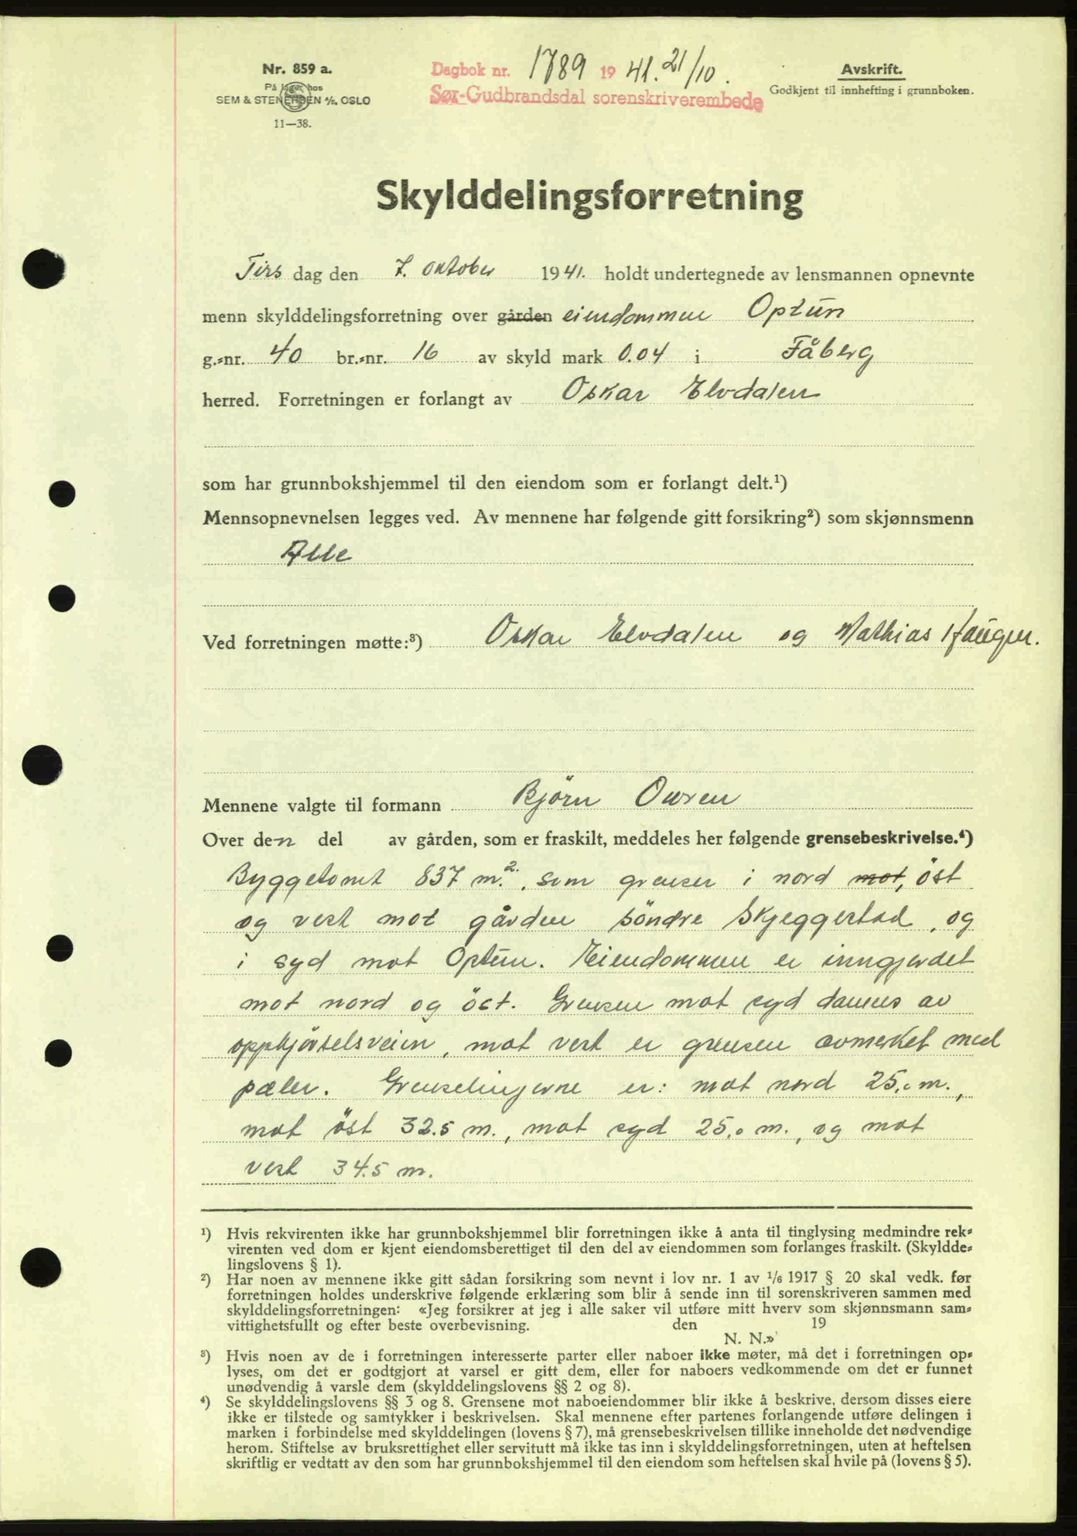 Nr. 859 a.
På lager hos
SEM & STENERSEN A/S. OSLO
11—38.
Dagbok nr. 1789 1941. 21/10.
Sør-Gudbrandsdal sorenskriverembede
Avskrift.
Godkjent til innhefting i grunnboken.
Skylddelingsforretning
Tirs dag den 7. oktober 1941. holdt undertegnede av lensmannen opnevnte
menn skylddelingsforretning over gården eiendommen Optun
g.-nr. 40 br.-nr. 16 av skyld mark 0.04 i Fåberg
herred. Forretningen er forlangt av Oskar Elvdalen
som har grunnbokshjemmel til den eiendom som er forlangt delt.¹)
Mennsopnevnelsen legges ved. Av mennene har følgende gitt forsikring²) som skjønnsmenn
Alle
Ved forretningen møtte:³) Oskar Elvdalen og Mathias Hauger.
Mennene valgte til formann Bjørn Owren
Over den del av gården, som er fraskilt, meddeles her følgende grensebeskrivelse.⁴)
Byggetomt 837 m.², som grenser i nord mot, öst
og vest mot gården söndre Skjeggestad, og
i syd mot Optun. Eiendommen er inngjerdet
mot nord og öst. Grensen mot syd dannes av
oppkjörselsveien, mot vest er grensen avmerket med
pæler. Grenselinjerne er: mot nord 25,0 m.,
mot öst 32.5 m., mot syd 25,0 m., og mot
vest 34.5 m.
¹) Hvis rekvirenten ikke har grunnbokshjemmel blir forretningen ikke å anta til tinglysing medmindre rek-
virenten ved dom er kjent eiendomsberettiget til den del av eiendommen som forlanges fraskilt. (Skyldde-
lingslovens § 1).
²) Har noen av mennene ikke gitt sådan forsikring som nevnt i lov nr. 1 av 1/6 1917 § 20 skal vedk. før
forretningen holdes underskrive følgende erklæring som blir å sende inn til sorenskriveren sammen med
skylddelingsforretningen: «Jeg forsikrer at jeg i alle saker vil utføre mitt hverv som skjønnsmann sam-
vittighetsfullt og efter beste overbevisning. den 19
N. N.»
³) Hvis noen av de i forretningen interesserte parter eller naboer ikke møter, må det i forretningen op-
lyses, om det er godtgjort at varsel er gitt dem, eller for naboers vedkommende om det er funnet
unødvendig å varsle dem (skylddelingslovens §§ 2 og 8).
⁴) Se skylddelingslovens §§ 3 og 8. Grensene mot naboeiendommer blir ikke å beskrive, dersom disses eiere
ikke er tilstede og samtykker i beskrivelsen. Skal mennene efter partenes forlangende utføre delingen i
marken i forbindelse med skylddelingen (lovens § 7), må grensebeskrivelsen tillike inneholde det nødvendige
herom. Stiftelse av bruksrettighet eller servitutt må ikke tas inn i skylddelingsforretningen, uten at heftelsen
skriftlig er vedtatt av den som har grunnbokshjemmel til den eiendom som heftelsen skal hvile på (lovens § 5).